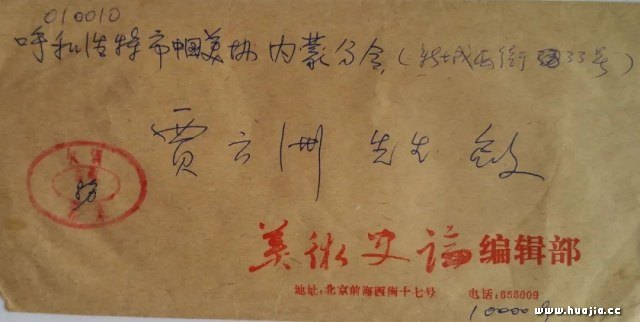 010010
呼和浩特市中国美协内蒙分会(新城西街33号)
贾云洲 先生 启
美术史论 编辑部
地址:北京前海西街十七号 电话:655009
10000
www.huajia.cc